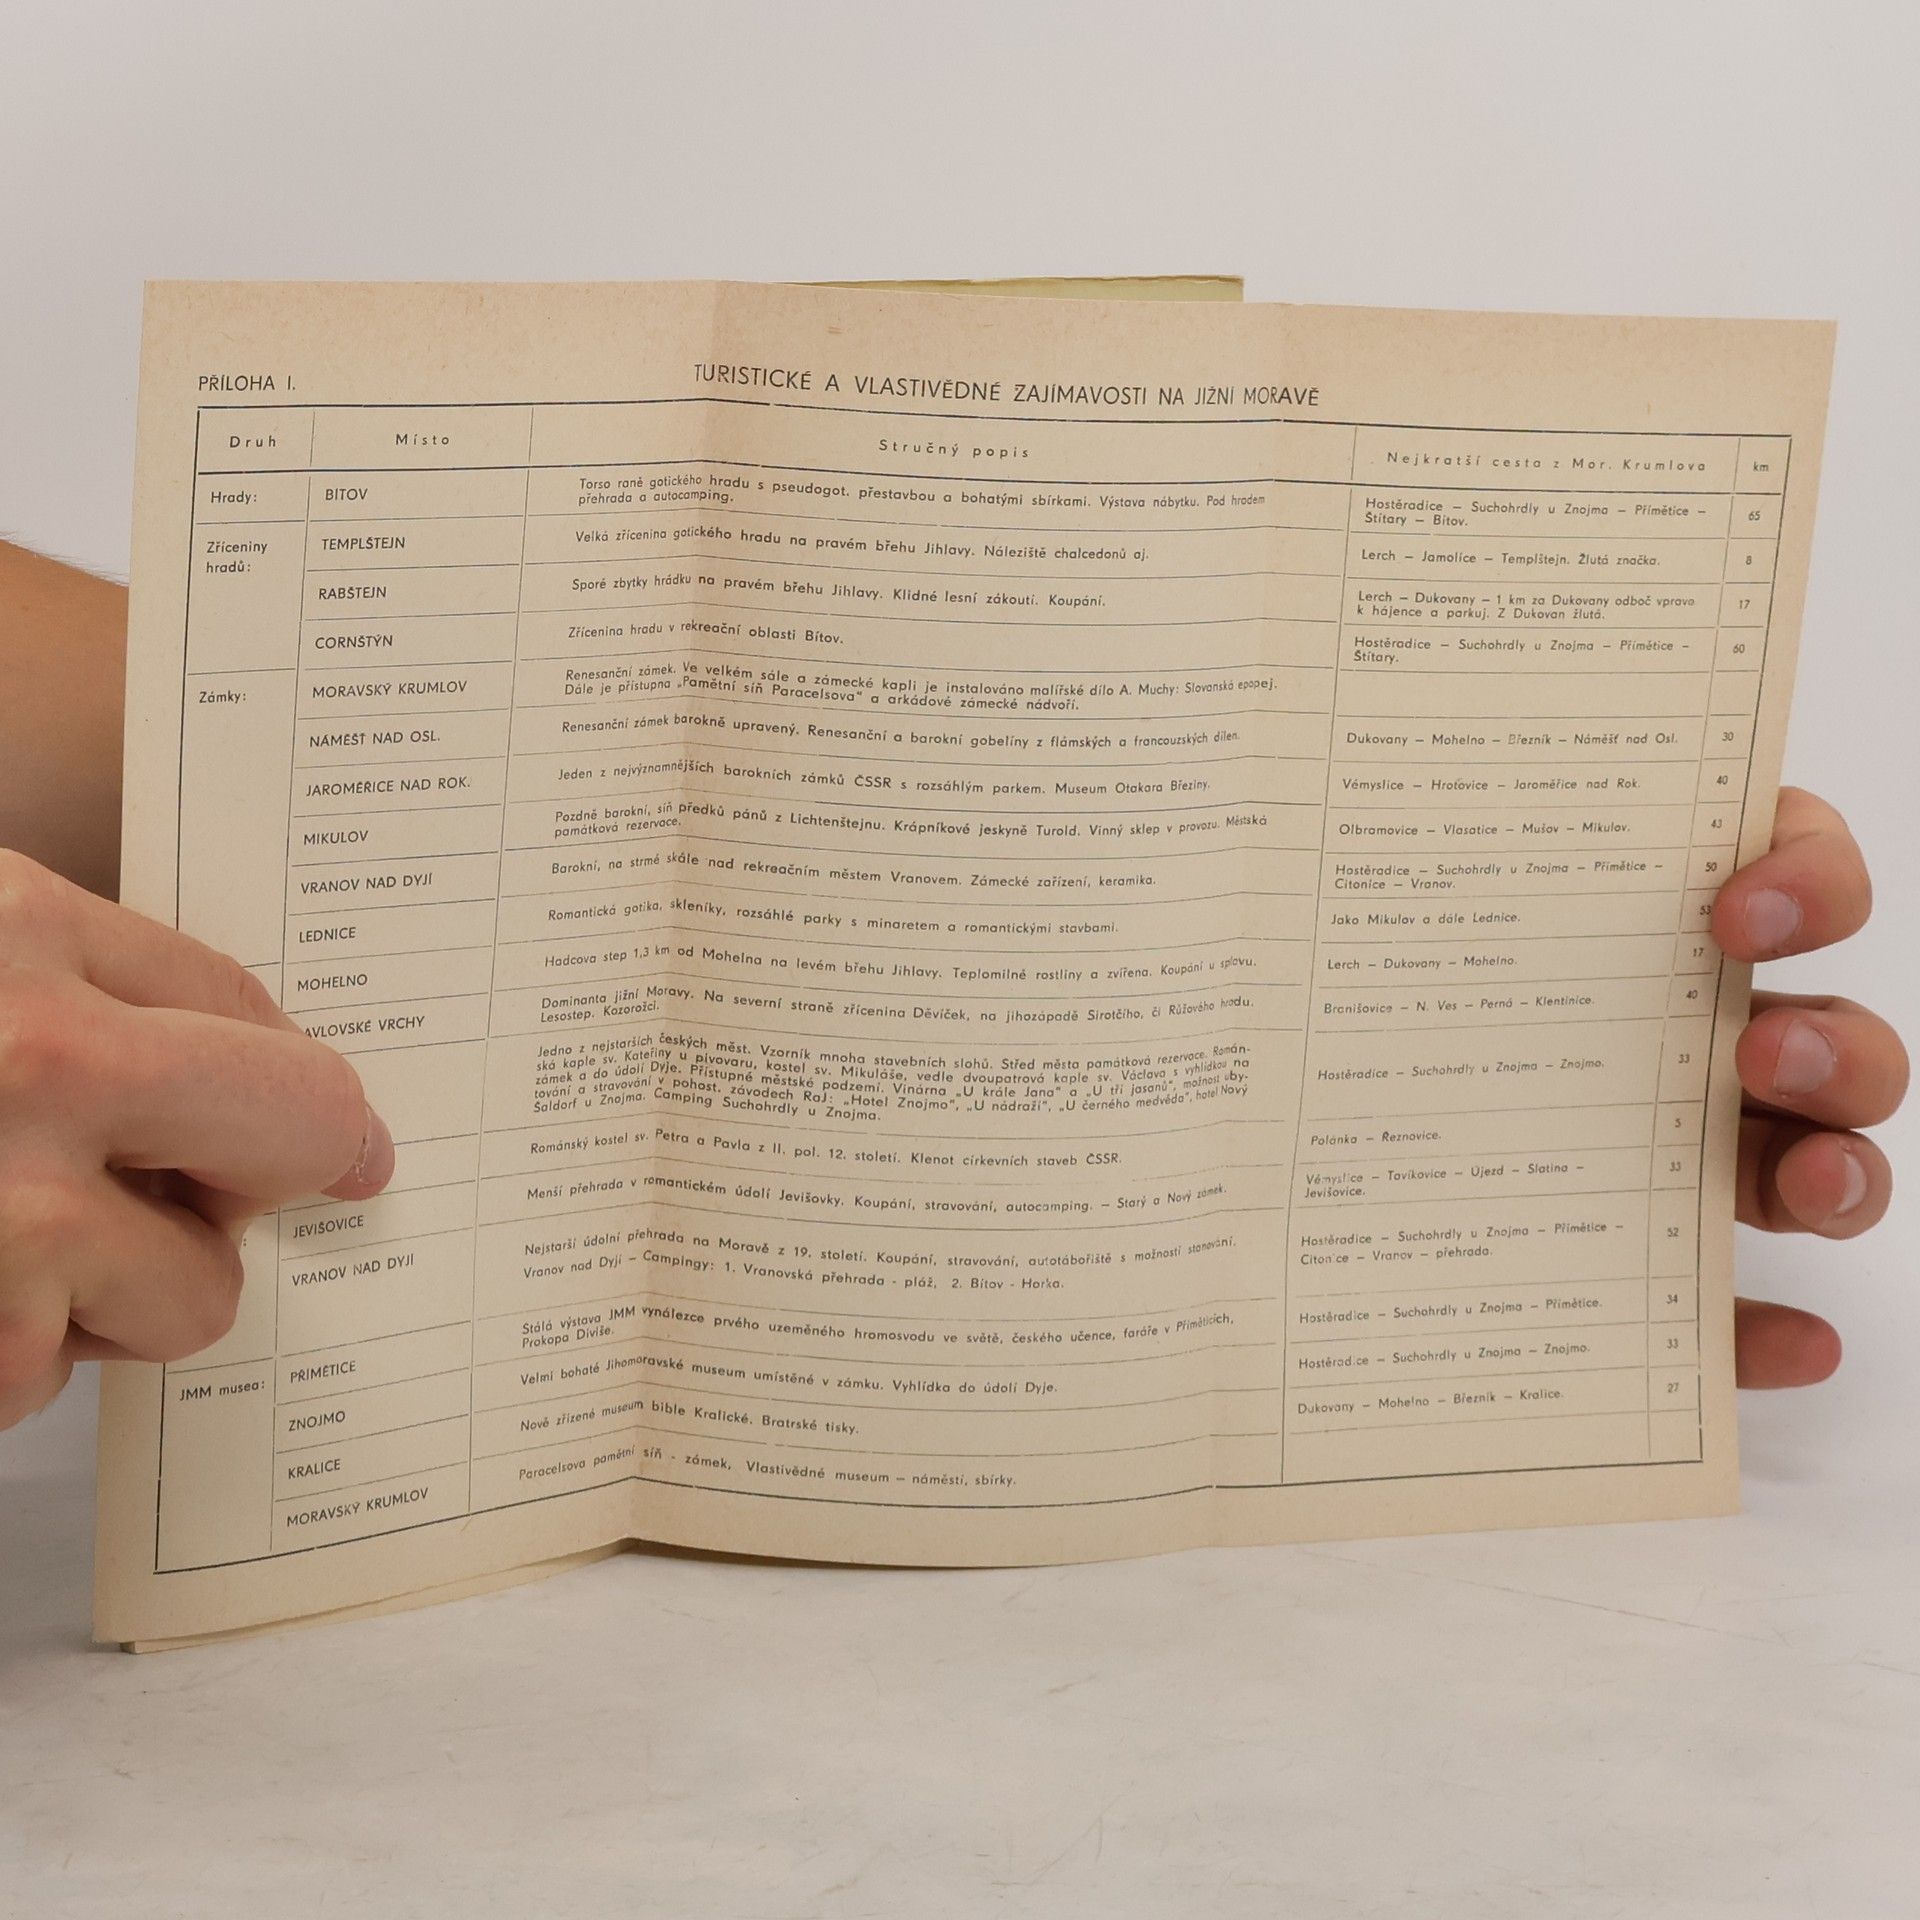 PŘÍLOHA I.
TURISTICKÉ A VLASTIVĚDNÉ ZAJÍMAVOSTI NA JIŽNÍ MORAVĚ
Druh Místo Stručný popis Nejkratší cesta z Mor. Krumlova km
Hrady: BÍTOV
Torso raně gotického hradu s pseudogot. přestavbou a bohatými sbírkami. Výstava nábytku. Pod hradem
přehrada a autocamping.
Hostěradice – Suchohrdly u Znojma – Přímětice –
Štítary – Bítov.
65
Zříceniny
hradů:
TEMPLŠTEJN
Velká zřícenina gotického hradu na pravém břehu Jihlavy. Náleziště chalcedonů aj.
Lerch – Jamolice – Templštejn. Žlutá značka.
8
RABŠTEJN
Sporé zbytky hrádku na pravém břehu Jihlavy. Klidné lesní zákoutí. Koupání.
Lerch – Dukovany – 1 km za Dukovany odboč vpravo
k hájence a parkuj. Z Dukovan žlutá.
17
CORNŠTÝN
Zřícenina hradu v rekreační oblasti Bítov.
Hostěradice – Suchohrdly u Znojma – Přímětice –
Štítary.
60
Zámky: MORAVSKÝ KRUMLOV
Renesanční zámek. Ve velkém sále a zámecké kapli je instalováno malířské dílo A. Muchy: Slovanská epopej.
Dále je přístupna „Pamětní síň Paracelsova“ a arkádové zámecké nádvoří.
NÁMĚŠŤ NAD OSL.
Renesanční zámek barokně upravený. Renesanční a barokní gobelíny z flámských a francouzských dílen.
Dukovany – Mohelno – Březník – Náměšť nad Osl.
30
JAROMĚŘICE NAD ROK.
Jeden z nejvýznamnějších barokních zámků ČSSR s rozsáhlým parkem. Museum Otakara Březiny.
Vémyslice – Hrotovice – Jaroměřice nad Rok.
40
MIKULOV
Pozdně barokní, síň předků pánů z Lichtenštejnu. Krápníkové jeskyně Turold. Vinný sklep v provozu. Městská
památková rezervace.
Olbramovice – Vlasatice – Mušov – Mikulov.
43
VRANOV NAD DYJÍ
Barokní, na strmé skále nad rekreačním městem Vranovem. Zámecké zařízení, keramika.
Hostěradice – Suchohrdly u Znojma – Přímětice –
Citonice – Vranov.
50
LEDNICE
Romantická gotika, skleníky, rozsáhlé parky s minaretem a romantickými stavbami.
Jako Mikulov a dále Lednice.
53
MOHELNO
Hadcova step 1,3 km od Mohelna na levém břehu Jihlavy. Teplomilné rostliny a zvířena. Koupání u splavu.
Lerch – Dukovany – Mohelno.
17
AVLOVSKÉ VRCHY
Dominanta jižní Moravy. Na severní straně zřícenina Děvíček, na jihozápadě Sirotčího, či Růžového hradu.
Lesostep. Kozorožci.
Branišovice – N. Ves – Perná – Klentinice.
40
Jedno z nejstarších českých měst. Vzorník mnoha stavebních slohů. Střed města památková rezervace. Román-
ská kaple sv. Kateřiny u pivovaru, kostel sv. Mikuláše, vedle dvoupatrová kaple sv. Václava s vyhlídkou na
zámek a do údolí Dyje. Přístupné městské podzemí. Vinárna „U krále Jana“ a „U tří jasanů“, možnost uby-
tování a stravování v pohost. závodech RaJ: „Hotel Znojmo“, „U nádraží“, „U černého medvěda“, hotel Nový
Šaldorf u Znojma. Camping Suchohrdly u Znojma.
Hostěradice – Suchohrdly u Znojma – Znojmo.
33
Románský kostel sv. Petra a Pavla z II. pol. 12. století. Klenot církevních staveb ČSSR.
Polánka – Řeznovice.
5
JEVIŠOVICE
Menší přehrada v romantickém údolí Jevišovky. Koupání, stravování, autocamping. – Starý a Nový zámek.
Vémyslice – Tavíkovice – Újezd – Slatina –
Jevišovice.
33
:
VRANOV NAD DYJÍ
Nejstarší údolní přehrada na Moravě z 19. století. Koupání, stravování, autotábořiště s možností stanování.
Vranov nad Dyjí – Campingy: 1. Vranovská přehrada - pláž, 2. Bítov - Horka.
Hostěradice – Suchohrdly u Znojma – Přímětice –
Citonice – Vranov – přehrada.
52
JMM musea: PŘÍMĚTICE
Stálá výstava JMM vynálezce prvého uzeměného hromosvodu ve světě, českého učence, faráře v Příměticích,
Prokopa Diviše.
Hostěradice – Suchohrdly u Znojma – Přímětice.
34
ZNOJMO
Velmi bohaté Jihomoravské museum umístěné v zámku. Vyhlídka do údolí Dyje.
Hostěradice – Suchohrdly u Znojma – Znojmo.
33
KRALICE
Nově zřízené museum bible Kralické. Bratrské tisky.
Dukovany – Mohelno – Březník – Kralice.
27
MORAVSKÝ KRUMLOV
Paracelsova pamětní síň - zámek, Vlastivědné museum – náměstí, sbírky.